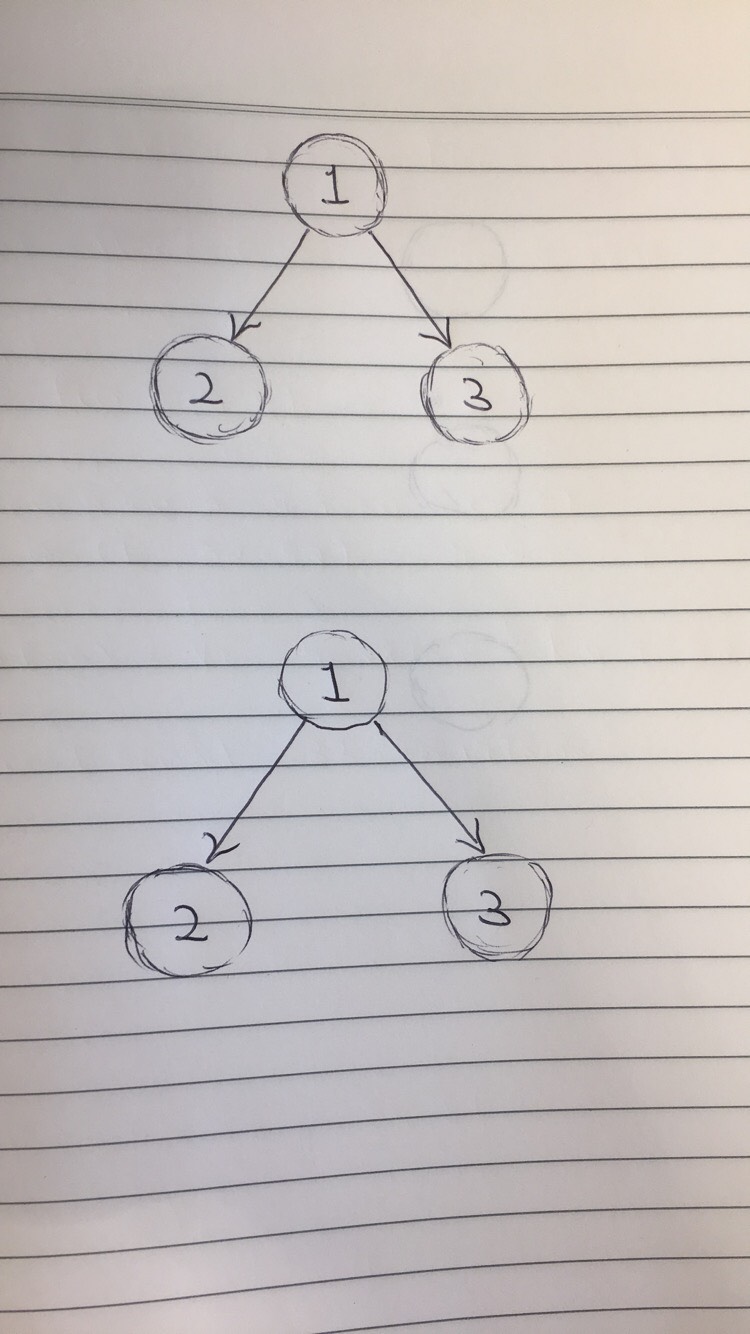 1
2 3
1
2 3